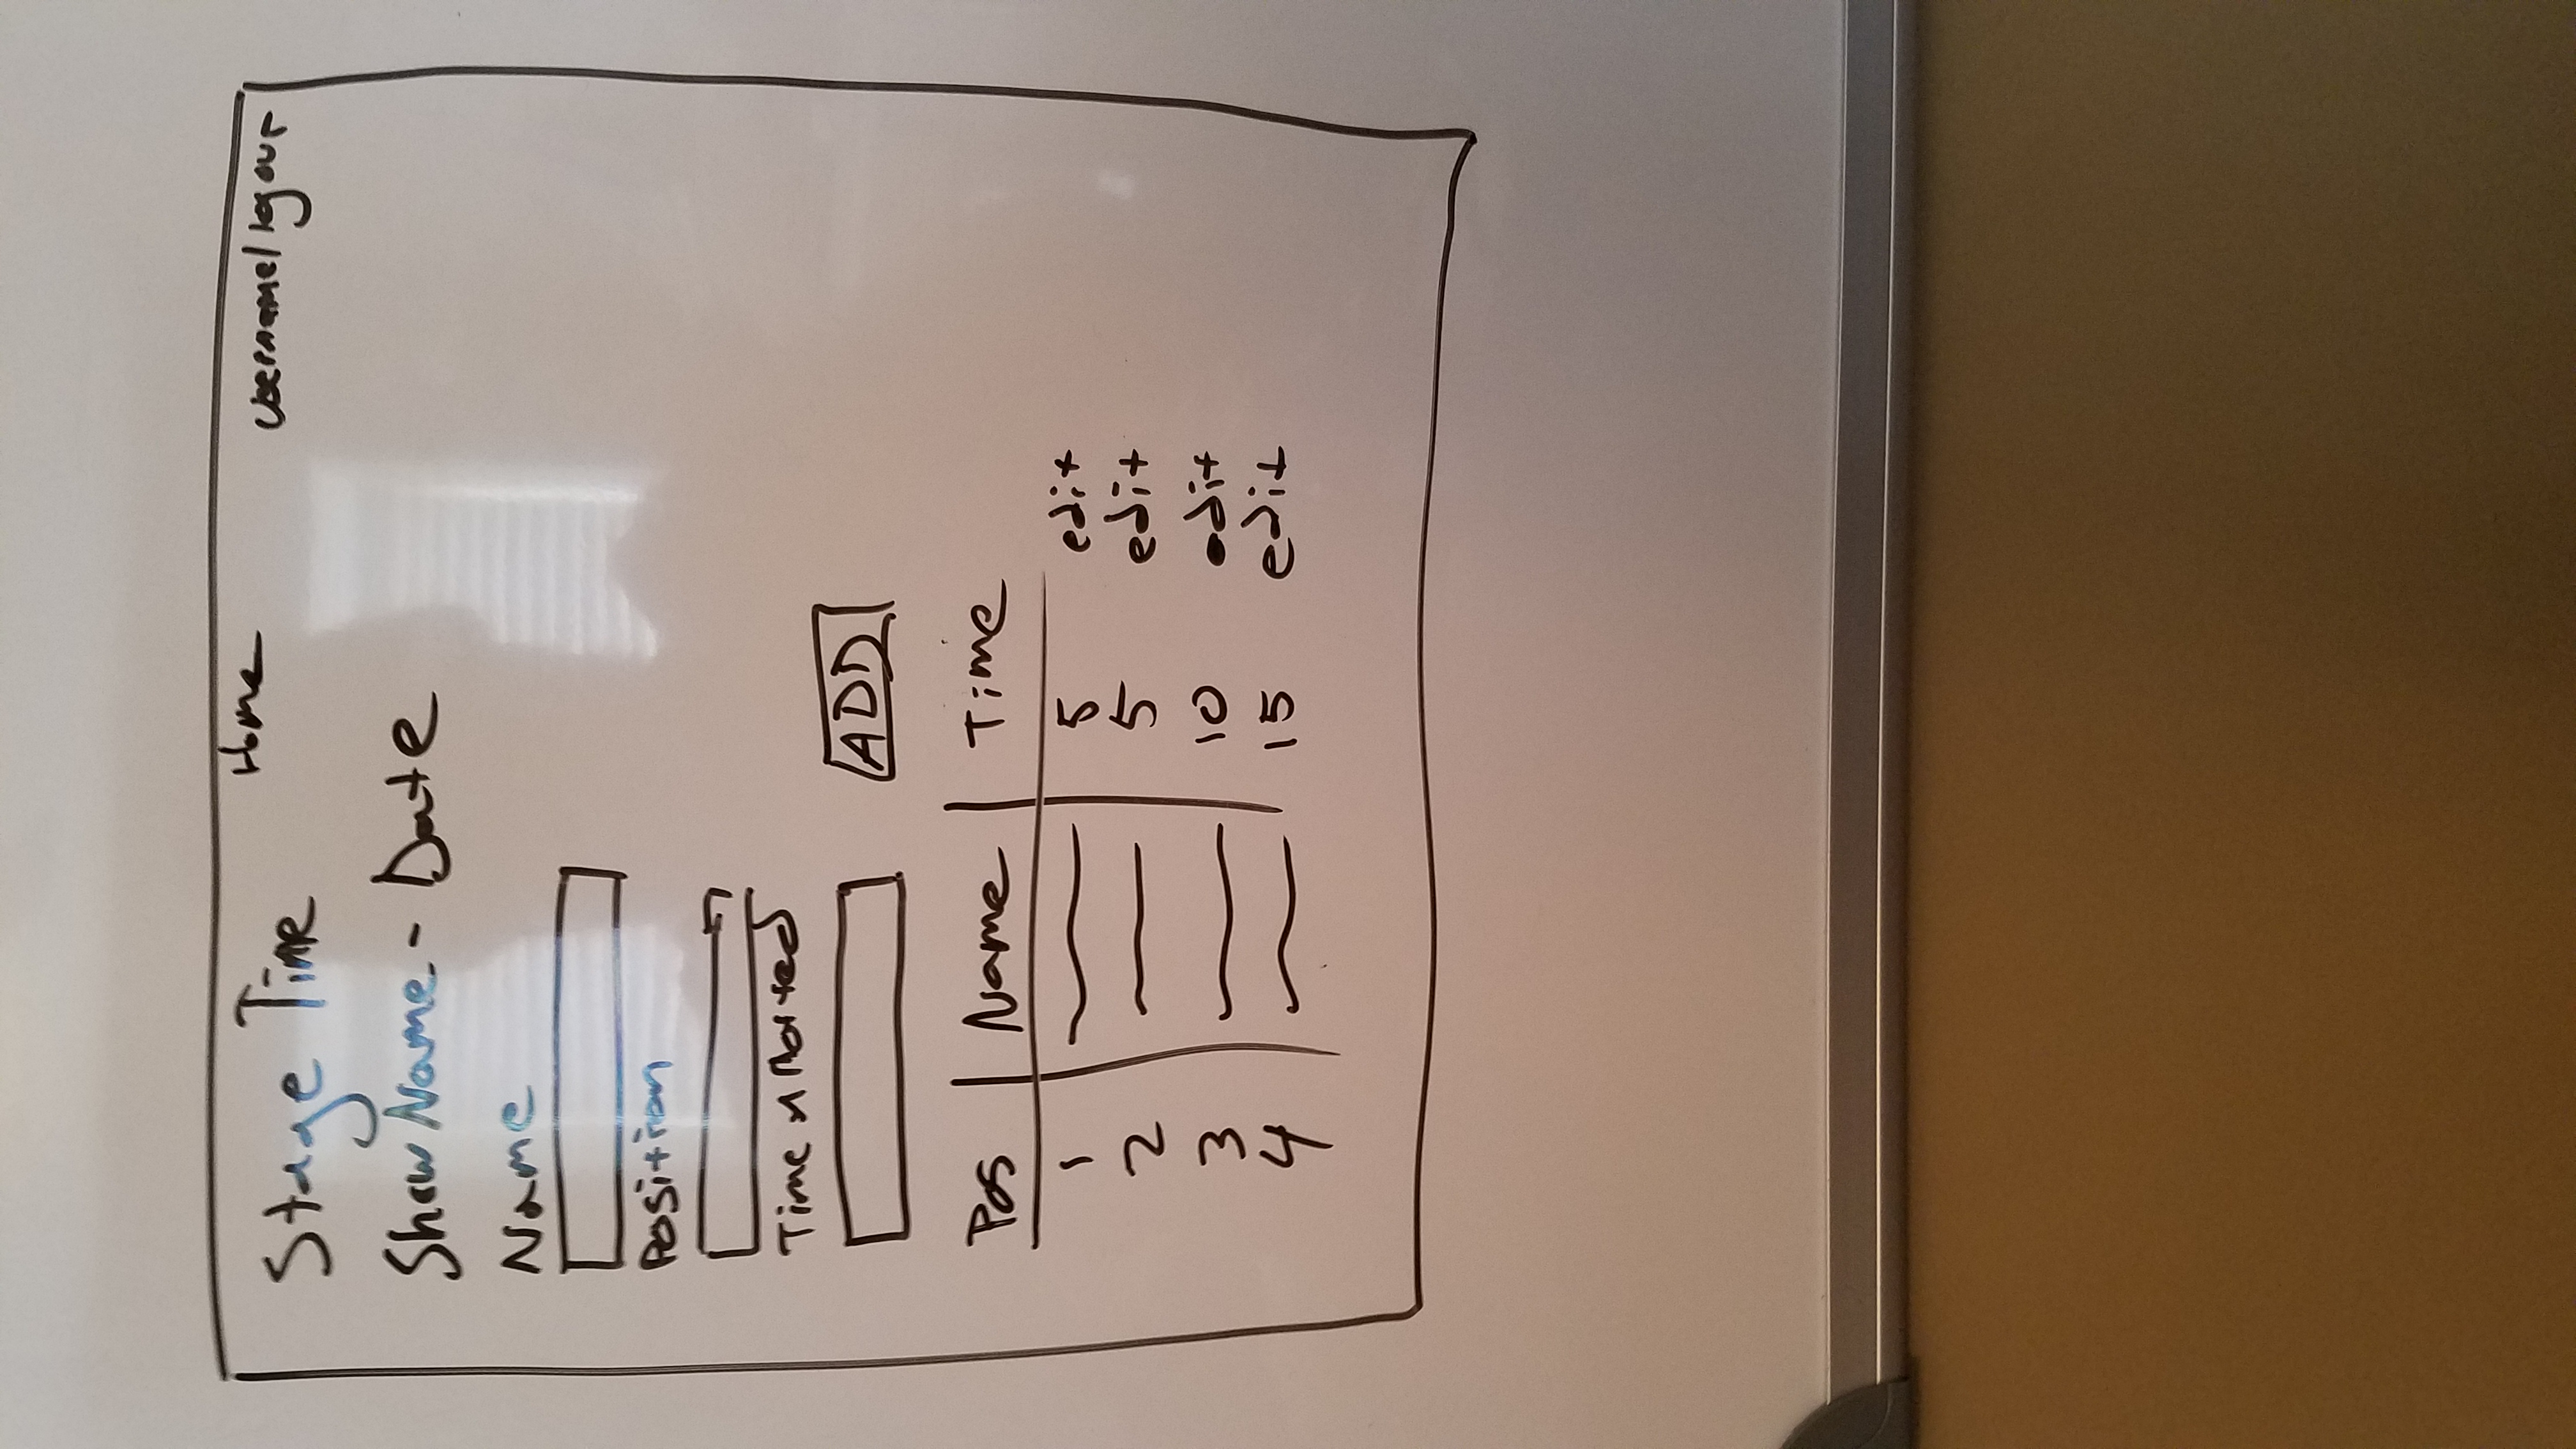 Stage Time Home username/logout
Show Name - Date
Name
Position
Time Allotted
ADD
Pos Name Time
1 5 edit
2 5 edit
3 10 edit
4 15 edit